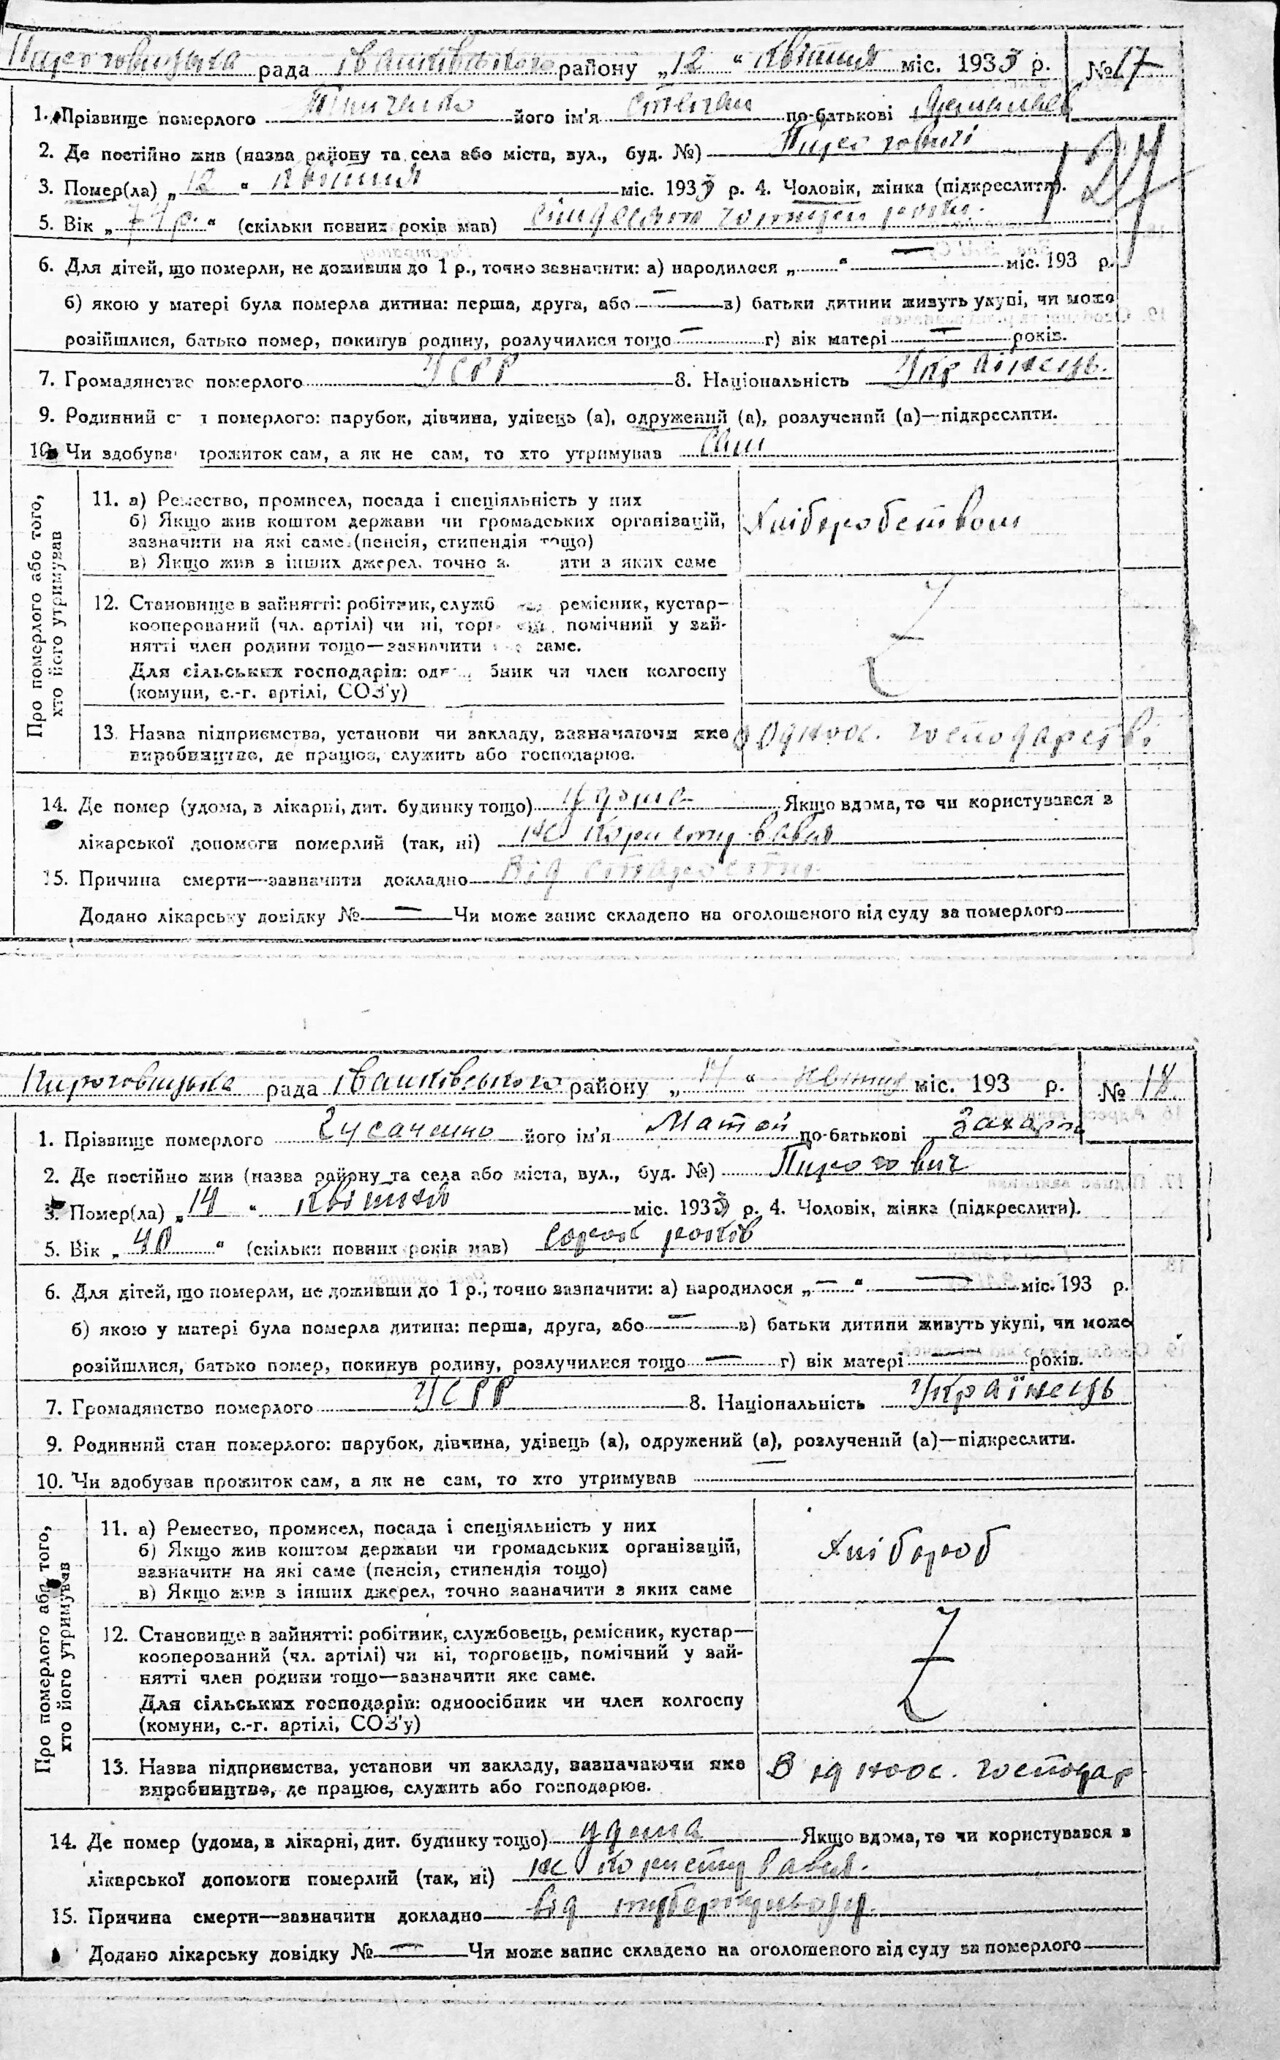 Пироговицька рада Іванківського району „12“ квітня міс. 1933 р. № 17
1. Прізвище померлого його ім'я Степан по-батькові
2. Де постійно жив (назва району та села або міста, вул., буд. №) Пироговичі
127
3. Помер(ла) „12“ квітня міс. 1933 р. 4. Чоловік, жінка (підкреслити).
5. Вік „74 р.“ (скільки повних років мав) сімдесят чотири роки.
6. Для дітей, що померли, не доживши до 1 р., точно зазначити: а) народилося „—“ — міс. 193 р.
б) якою у матері була померла дитина: перша, друга, або — в) батьки дитини живуть укупі, чи може
розійшлися, батько помер, покинув родину, розлучилися тощо — г) вік матері — років.
7. Громадянство померлого УСРР 8. Національність Українець.
9. Родинний с і померлого: парубок, дівчина, удівець (а), одружений (а), розлучений (а)—підкреслити.
10. Чи здобува прожиток сам, а як не сам, то хто утримував сам
Про померлого або того, хто його утримував
11. а) Ремество, промисел, посада і спеціяльність у них
б) Якщо жив коштом держави чи громадських організацій,
зазначити на які саме (пенсія, стипендія тощо)
в) Якщо жив з інших джерел, точно з ити з яких саме
Хліборобством
12. Становище в зайнятті: робітник, служб ремісник, кустар—
кооперований (чл. артілі) чи ні, торг помічний у зай-
нятті член родини тощо—зазначити саме.
Для сільських господарів: од бник чи член колгоспу
(комуни, с.-г. артілі, СОЗ'у)
13. Назва підприємства, установи чи закладу, зазначаючи яке
виробництво, де працює, служить або господарює.
в однос. господарстві
14. Де помер (удома, в лікарні, дит. будинку тощо) удома Якщо вдома, то чи користувався з
лікарської допомоги померлий (так, ні) не користувався
15. Причина смерти—зазначити докладно Від старости.
Додано лікарську довідку № — Чи може запис складено на оголошеного від суду за померлого
Пироговицька рада Іванківського району „14“ квітня міс. 193 р. № 18
1. Прізвище померлого Гусаченко його ім'я Матвій по-батькові Захаров
2. Де постійно жив (назва району та села або міста, вул., буд. №) Пирогович
3. Помер(ла) „14“ квітня міс. 1933 р. 4. Чоловік, жінка (підкреслити).
5. Вік „40“ (скільки повних років мав) сорок років
6. Для дітей, що померли, не доживши до 1 р., точно зазначити: а) народилося „—“ — міс. 193 р.
б) якою у матері була померла дитина: перша, друга, або — в) батьки дитини живуть укупі, чи може
розійшлися, батько помер, покинув родину, розлучилися тощо — г) вік матері — рохів.
7. Громадянство померлого УСРР 8. Національність Українець
9. Родинний стан померлого: парубок, дівчина, удівець (а), одружений (а), розлучений (а)—підкреслити.
10. Чи здобував прожиток сам, а як не сам, то хто утримував
Про померлого або того, хто його утримував
11. а) Ремество, промисел, посада і спеціяльність у них
б) Якщо жив коштом держави чи громадських організацій,
зазначити на які саме (пенсія, стипендія тощо)
в) Якщо жив з інших джерел, точно зазначити з яких саме
Хлібороб
12. Становище в зайнятті: робітник, службовець, ремісник, кустар—
кооперований (чл. артілі) чи ні, торговець, помічний у зай-
нятті член родини тощо—зазначити яке саме.
Для сільських господарів: одноосібник чи член колгоспу
(комуни, с.-г. артілі, СОЗ'у)
13. Назва підприємства, установи чи закладу, зазначаючи яке
виробництво, де працює, служить або господарює.
В одноос. господар
14. Де помер (удома, в лікарні, дит. будинку тощо) удома Якщо вдома, то чи користувався з
лікарської допомоги померлий (так, ні) не користувався.
15. Причина смерти—зазначити докладно від туберкульозу.
Додано лікарську довідку № — Чи може запис складено на оголошеного від суду за померлого